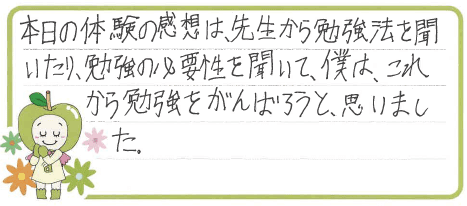 本日の体験の感想は、先生から勉強法を聞
いたり、勉強の必要性を聞いて、僕は、これ
から勉強をがんばろうと、思いまし
た。